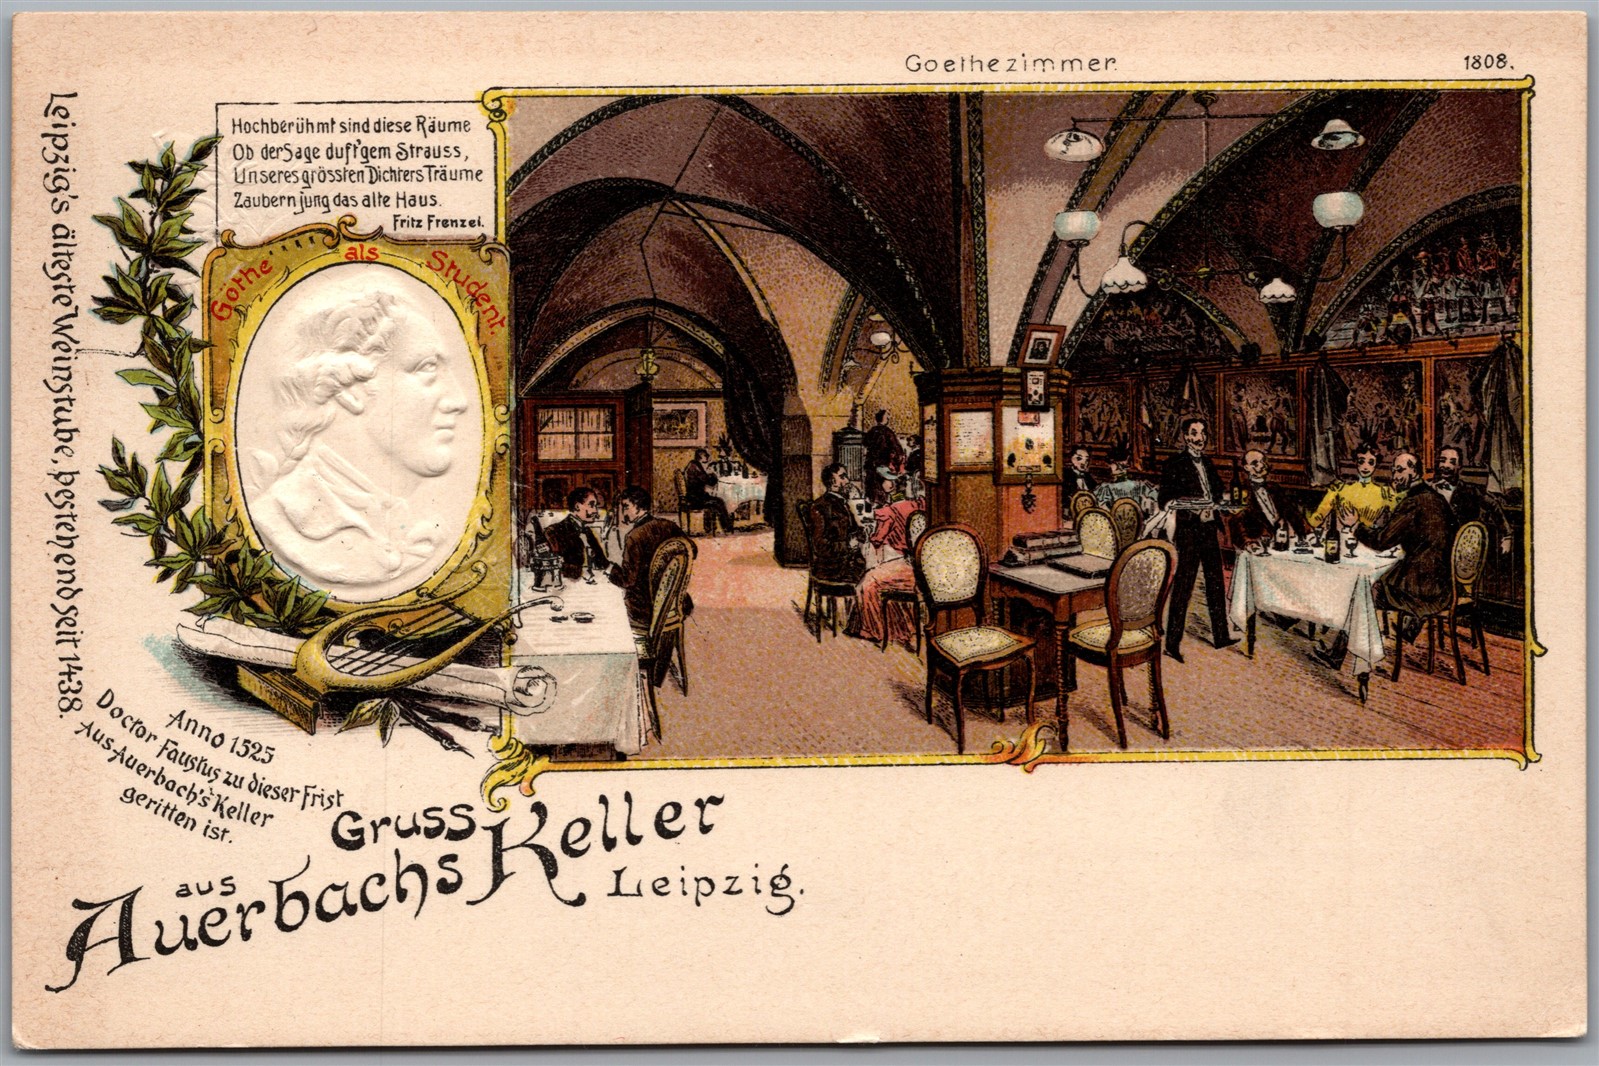 Goethezimmer.
1808.
Hochberühmt sind diese Räume
Ob der Sage duft'gem Strauss,
Unseres grössten Dichters Träume
Zaubern jung das alte Haus.
Fritz Frenzel.
Göthe als Student
Leipzig's älteste Weinstube, bestehend seit 1438.
Anno 1525
Doctor Faustus zu dieser Frist
Aus Auerbach's Keller
geritten ist.
Gruss
aus
Auerbachs Keller
Leipzig.